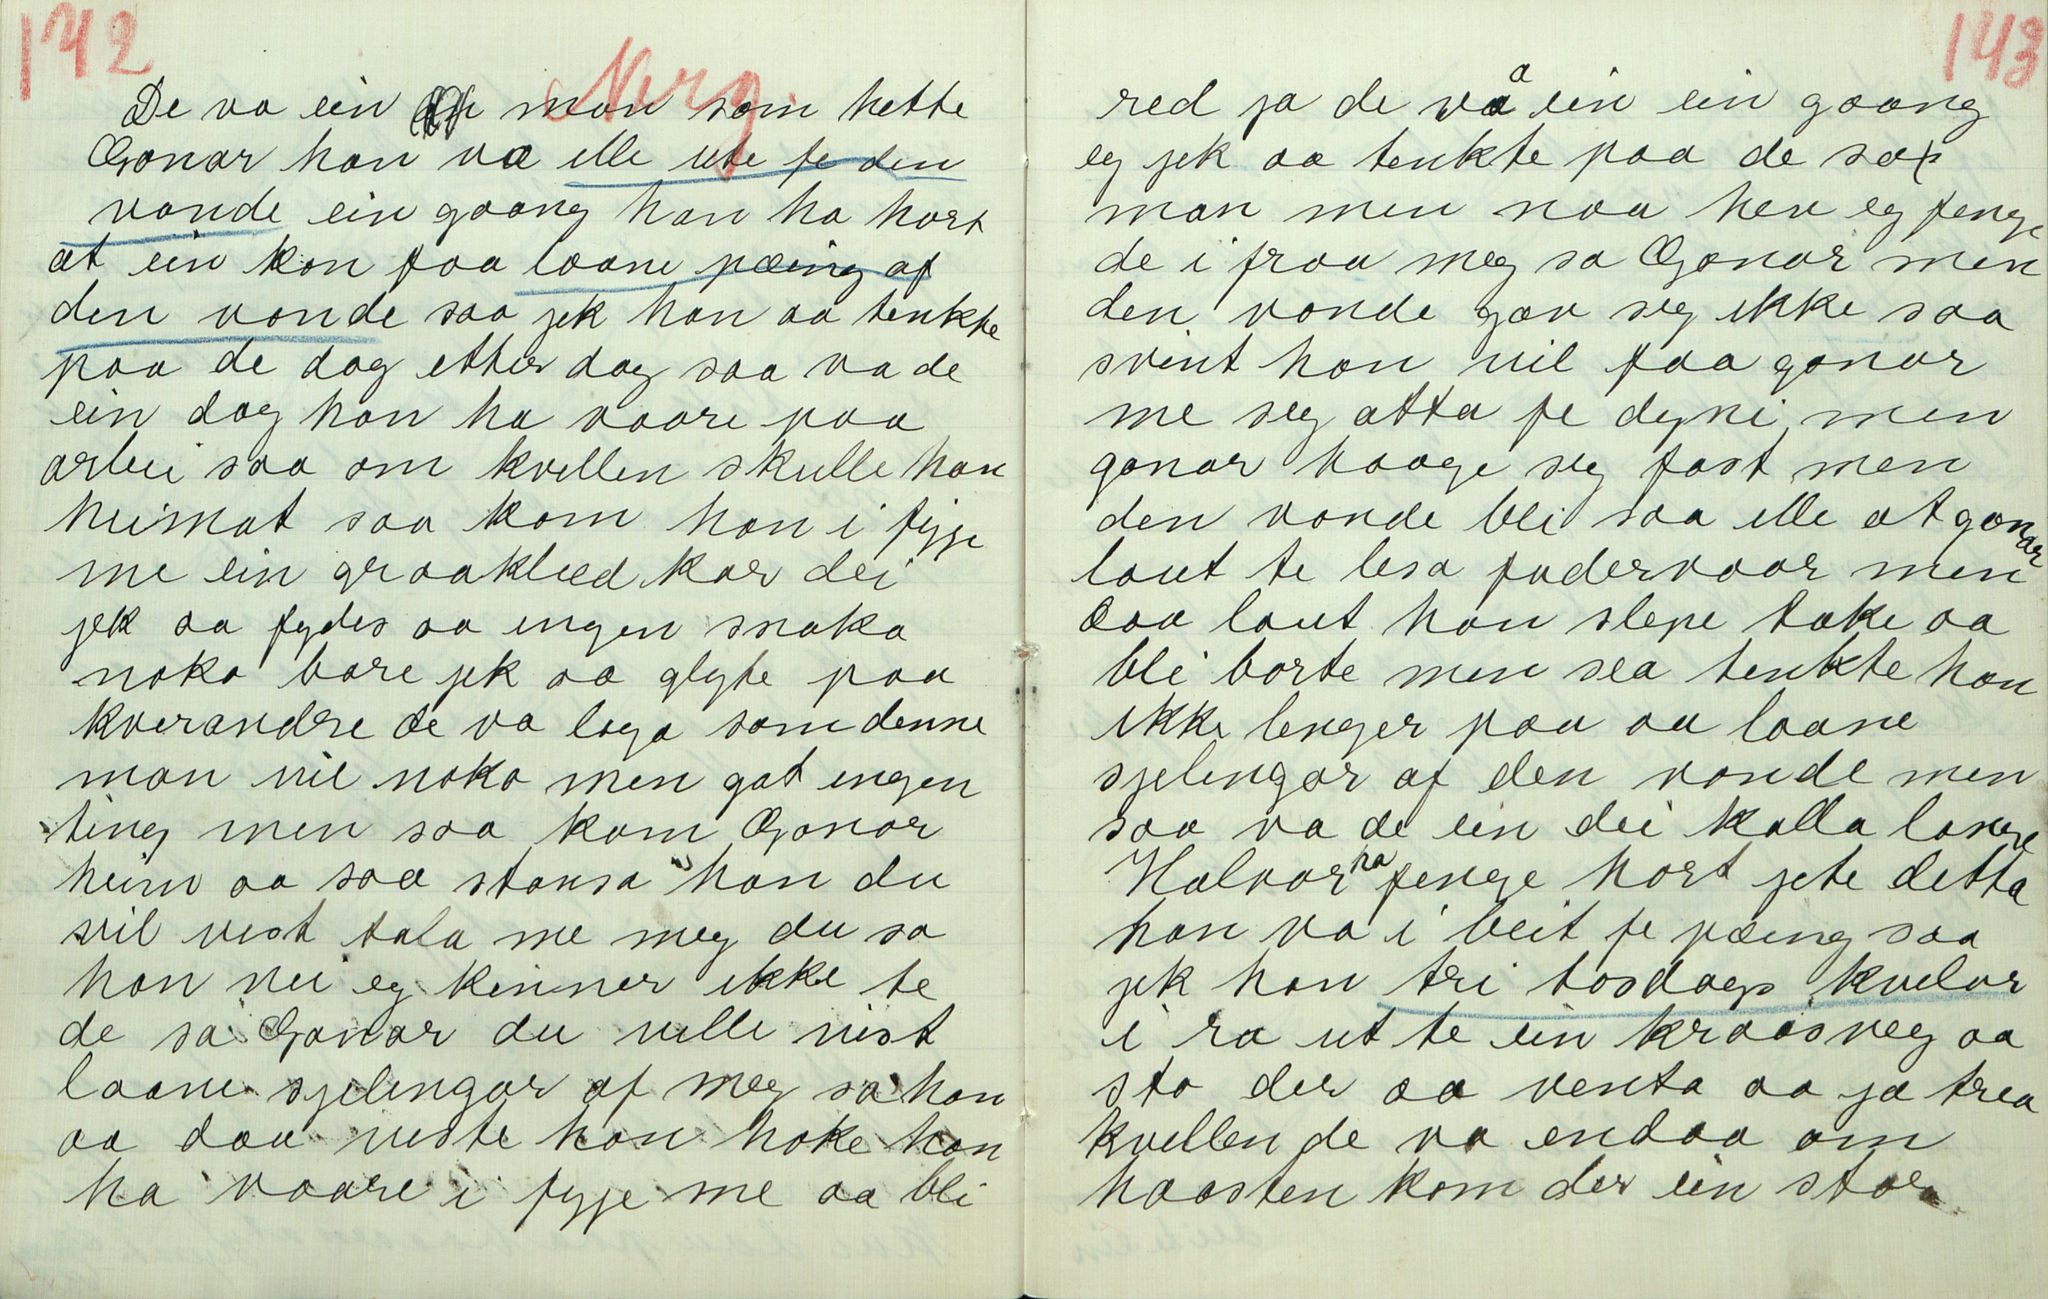 142
Norg.
De va ein man som hette
Gonar han va ille ute fe den
vonde ein goang han ha hort
at ein kan faa laane pæing af
den vonde saa jek han aa tenkte
paa de dag etter dag saa va de
ein dag han ha vaare paa
arbei saa om kvellen skulle han
heimat saa kom han i fyjje
me ein graaklæd kar dei
jek aa fydes aa ingen snaka
noko bare jek aa glyte paa
kverandre de va loga som denne
man vil noko men gat ingen
ting men saa kom Gonar
heim aa saa stansa han du
vil vist tala me meg du sa
han nei eg kinner ikke te
de sa Gonar du ville vist
laane sjelingar af meg sa han
aa daa viste han hoke han
ha vaare i fyjje me aa bli
143
red ja de va a ein ein goang
eg jek aa tenkte paa de sa
man men naa hev eg fenge
de i fraa meg sa Gonar men
den vonde gav seg ikke saa
svint han vil faa gonar
me seg atta fe dyni men
gonar haage seg fast men
den vonde bli saa ille at gonar
laut te lesa fadervaar men
daa laut han slepe take aa
bli borte men sea tenkte han
ikke lenger paa aa laane
sjelingar af den vonde men
saa va de ein dei kalla lange
Halvor ha fenge hort jete detta
han va i beit fe pæing saa
jek han tri tosdags kvelar
i ra ut te ein kraasveg aa
sto der aa venta aa ja trea
kvellen de va endaa om
haasten kom der ein stor